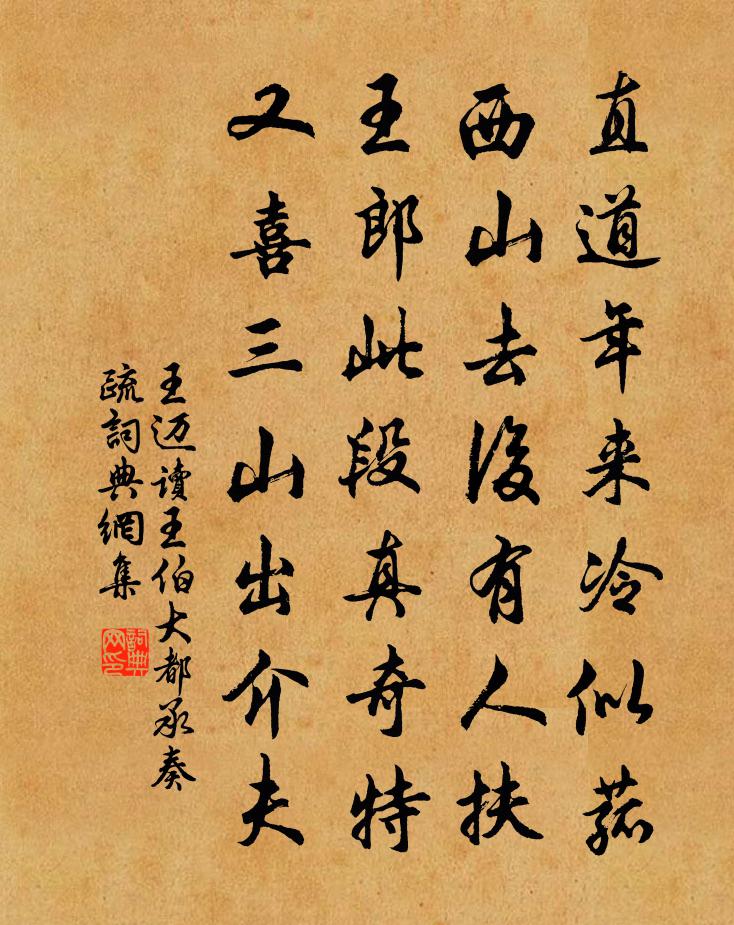 直道年来冷似菰
西山去後有人扶
王郎此段真奇特
又喜三山出介夫
王迈讀王伯大都承奏
疏詞典網集
詞典
网印